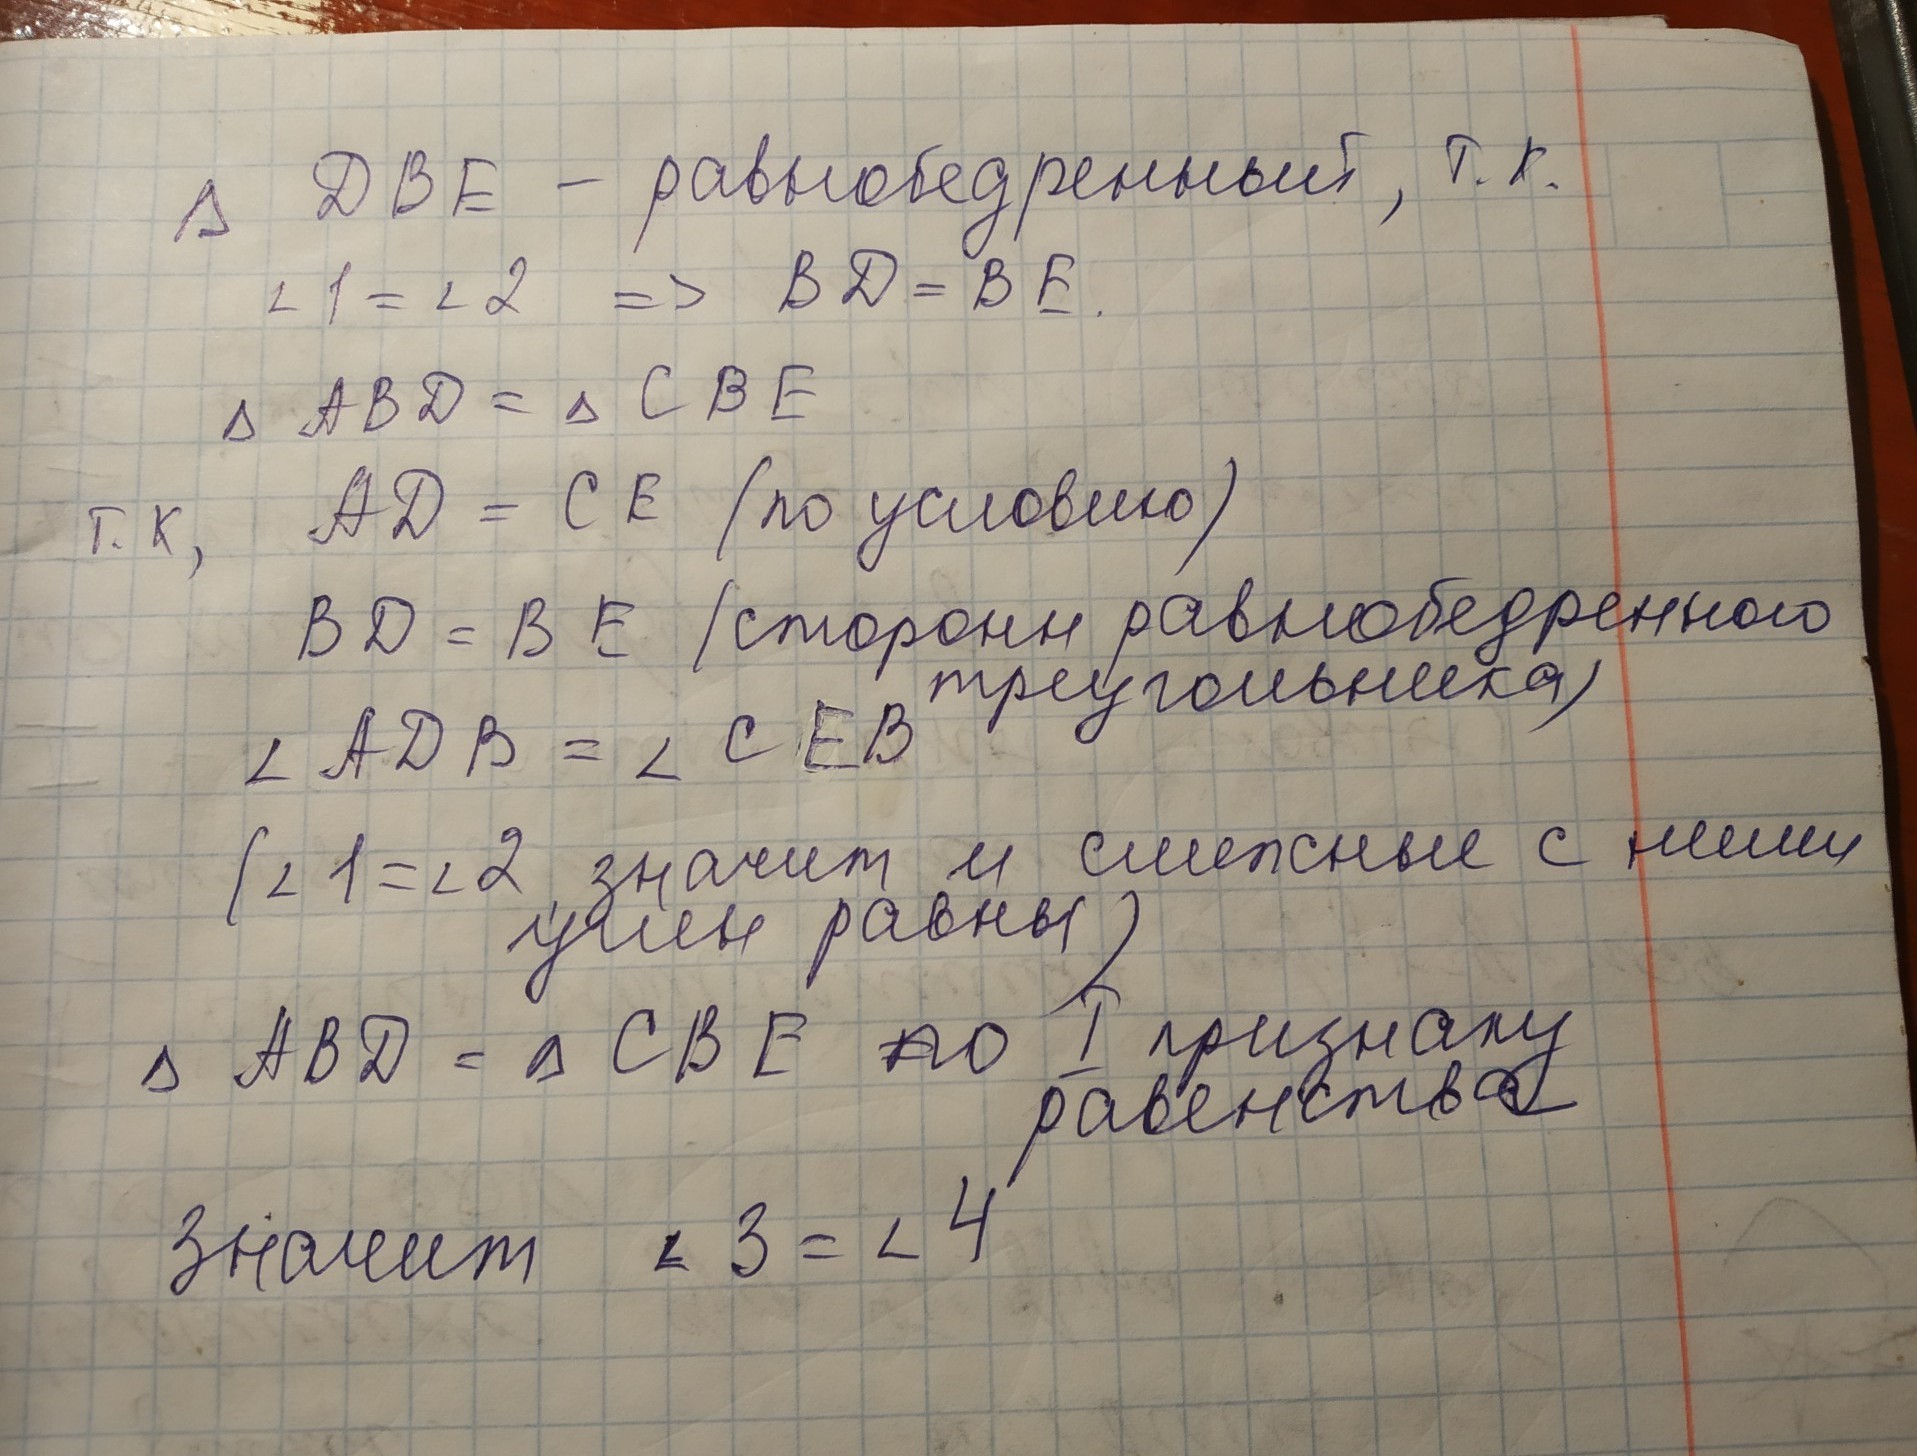 △ DBE – равнобедренный, т.к.
∠1 = ∠2 => BD = BE.
△ ABD = △ CBE
т.к, AD = CE (по условию)
BD = BE (стороны равнобедренного
треугольника)
∠ ADB = ∠ CEB
(∠1=∠2 значит и смежные с ними
углы равны)
△ ABD = △ CBE по I признаку
равенства
Значит ∠3 = ∠4